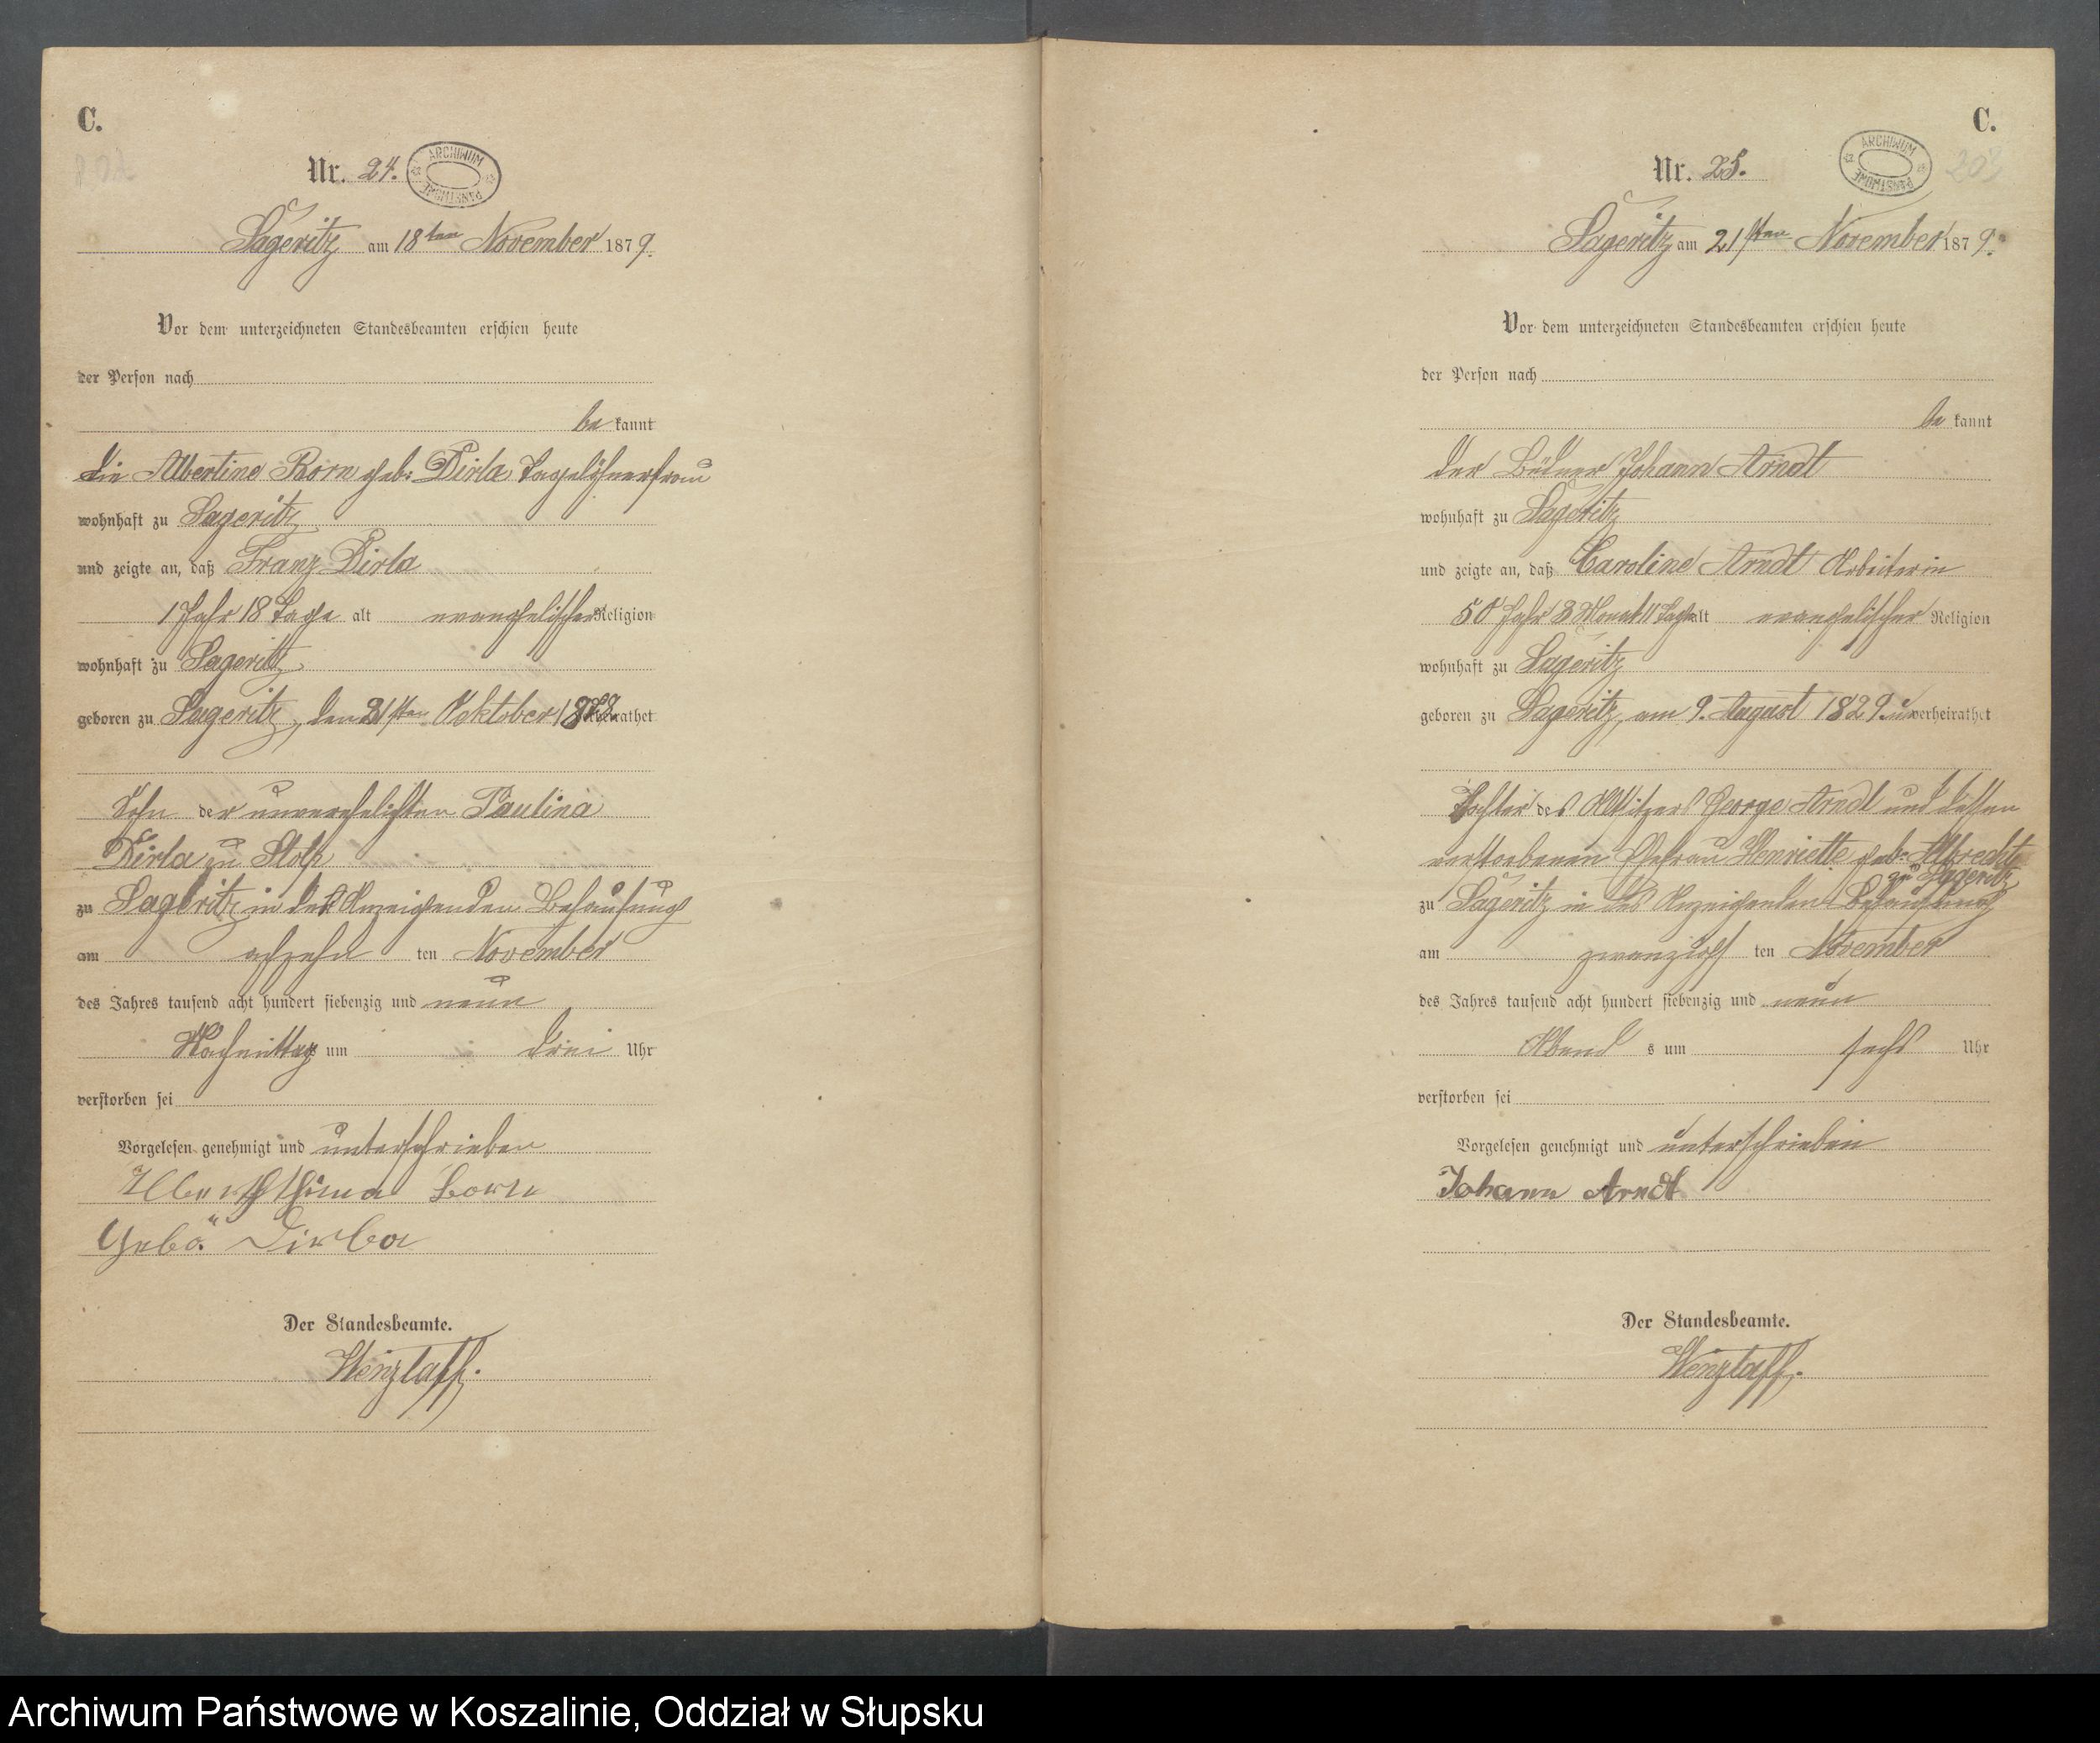 C.
Nr. 24.
ARCHIWUM PAŃSTWOWE
Sageritz am 18ten November 1879.
Vor dem unterzeichneten Standesbeamten erschien heute
der Person nach
be kannt
die Albertine Born geb. Dirla Tagelöhnerfrau
wohnhaft zu Sageritz
und zeigte an, daß Franz Dirla
1 Jahr 18 Tage alt evangelischer Religion
wohnhaft zu Sageritz
geboren zu Sageritz, den 31sten Oktober 1878 heirathet
Sohn der unverehelichten Paulina
Dirla zu Stolp
zu Sageritz in des Anzeigenden Behausung
am achzehn ten November
des Jahres tausend acht hundert siebenzig und neun
Nachmittags um drei Uhr
verstorben sei
Vorgelesen genehmigt und unterschrieben
Born
Dirla
Der Standesbeamte.
Wenzlaff.
C.
Nr. 25.
ARCHIWUM PAŃSTWOWE
203
Sageritz am 21sten November 1879.
Vor dem unterzeichneten Standesbeamten erschien heute
der Person nach
be kannt
der Büdner Johann Arndt
wohnhaft zu Sageritz
und zeigte an, daß Caroline Arndt Arbeiterin
50 Jahr 3 Monat 11 Tage alt evangelischer Religion
wohnhaft zu Sageritz
geboren zu Sageritz, am 9. August 1829. unverheirathet
Tochter des Altsitzers George Arndt und dessen
verstorbenen Ehefrau Henriette geb. Albrecht
zu Sageritz
zu Sageritz in des Anzeigenden Behausung
am zwanzigs ten November
des Jahres tausend acht hundert siebenzig und neun
Abend s um sechs Uhr
verstorben sei
Vorgelesen genehmigt und unterschrieben
Johann Arndt
Der Standesbeamte.
Wenzlaff.
Archiwum Państwowe w Koszalinie, Oddział w Słupsku